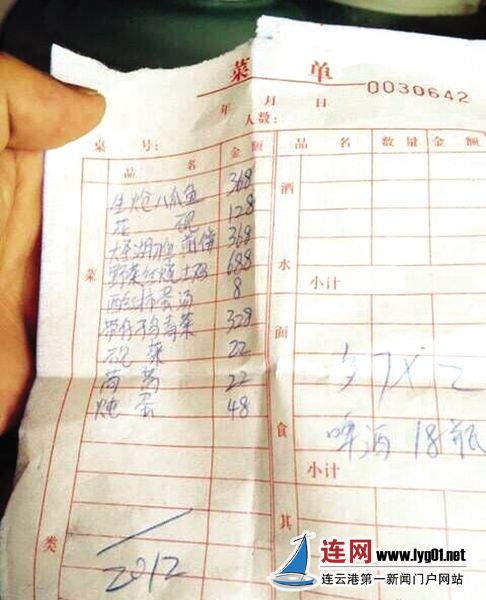 菜 单
0030642
年 月 日
桌 号: 人数:
品 名 金 额 品 名 数 量 金 额
菜
生炝八爪鱼 368
花 砚 128
368
野菜红烧土鸡 688
西红柿蛋汤 8
青菜 328
砚 菜 22
茼 蒿 22
炖 蛋 48
类
2012
酒
水
小计
面
食
啤酒 18瓶
小计
其
连网 www.lyg01.net
连云港第一新闻门户网站